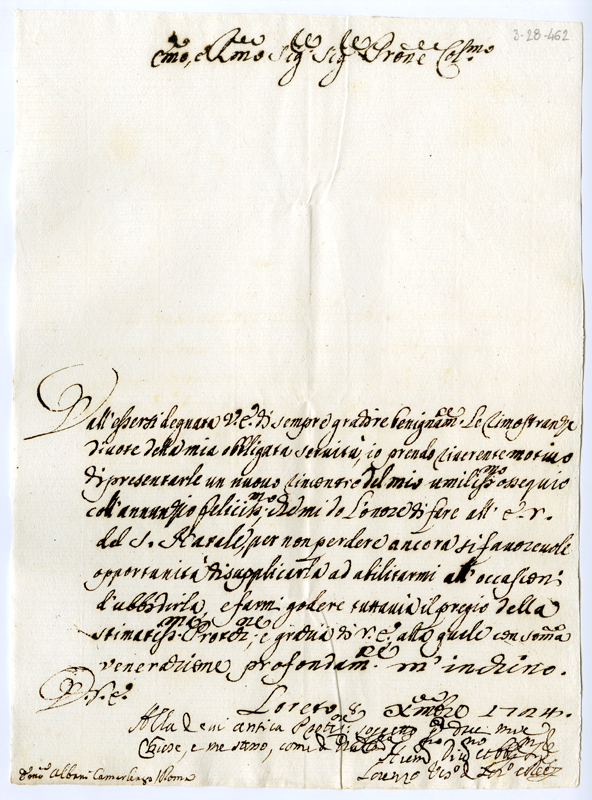 3-28-462
Emo, e Rmo Sigre Sigre Prone Colmo
Dall'essersi degnata V. E. di sempre gradire benignamte le rimostranze
divote della mia obbligata servitù, io prendo riverente motivo
di presentarle un nuovo rincontro del mio umilissmo ossequio
coll'annunzio felicissmo, che mi do l'onore di fare all' E. V.
del S. Natale, per non perdere ancora sì favorevole
opportunità di supplicarla ad abilitarmi all'occasioni
d'ubbidirla, e farmi godere tuttavia il pregio della
stimatissma Protezne, e grazia di V. E., alla quale con somma
venerazione profondamte m'inchino.
D. V. E.
Loreto 8 Xmbre 1724.
Alla di cui antica
Chiese, e me stesso, come
Lorenzo Vesco di
Albani Camarlengo / Roma